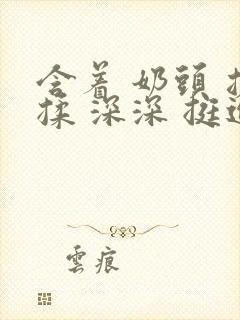 含着 奶頭
揉 深深 挺
雲痕